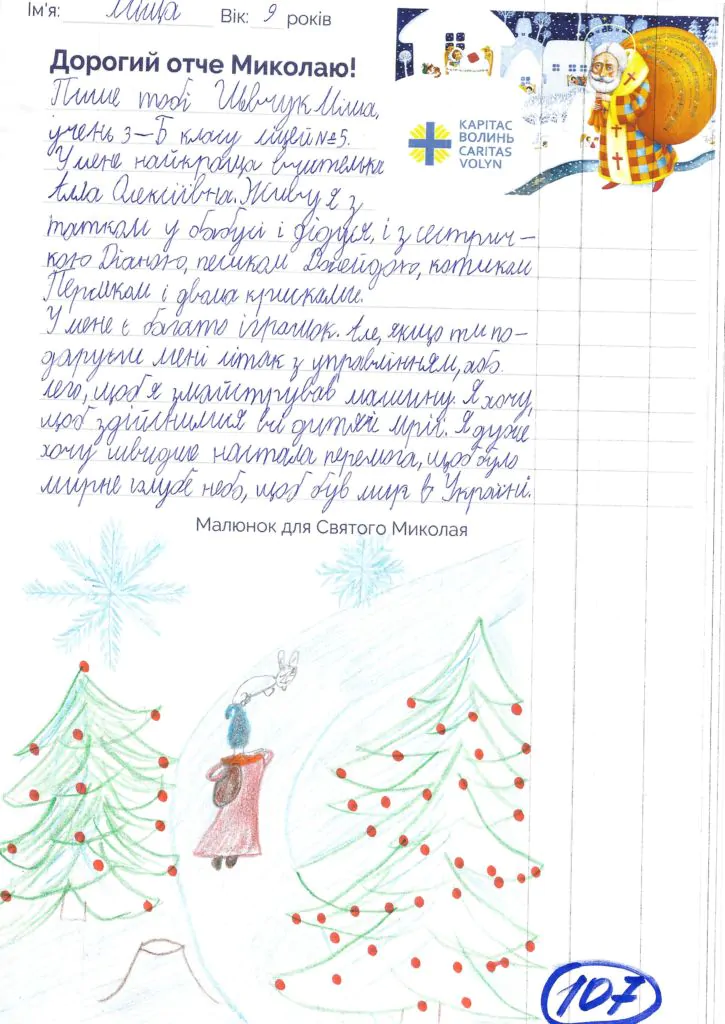 Ім'я: Міша Вік: 9 років
Дорогий отче Миколаю!
КАРІТАС
ВОЛИНЬ
CARITAS
VOLYN
Пише тобі Шевчук Міша,
учень 3-Б класу ліцей №5.
У мене найкраща вчителька
Алла Олексіївна. Живу я з
татком у бабусі і дідуся, і з сестрич-
кою Діаною, песиком Джейдою, котиком
Персиком і двома крисками.
У мене є багато іграшок. Але, якщо ти по-
даруєш мені літак з управлінням, або
лего, щоб я змайстрував машину. Я хочу,
щоб здійснились всі дитячі мрії. Я дуже
хочу швидше настала перемога, щоб було
мирне голубе небо, щоб був мир в Україні.
Малюнок для Святого Миколая
107